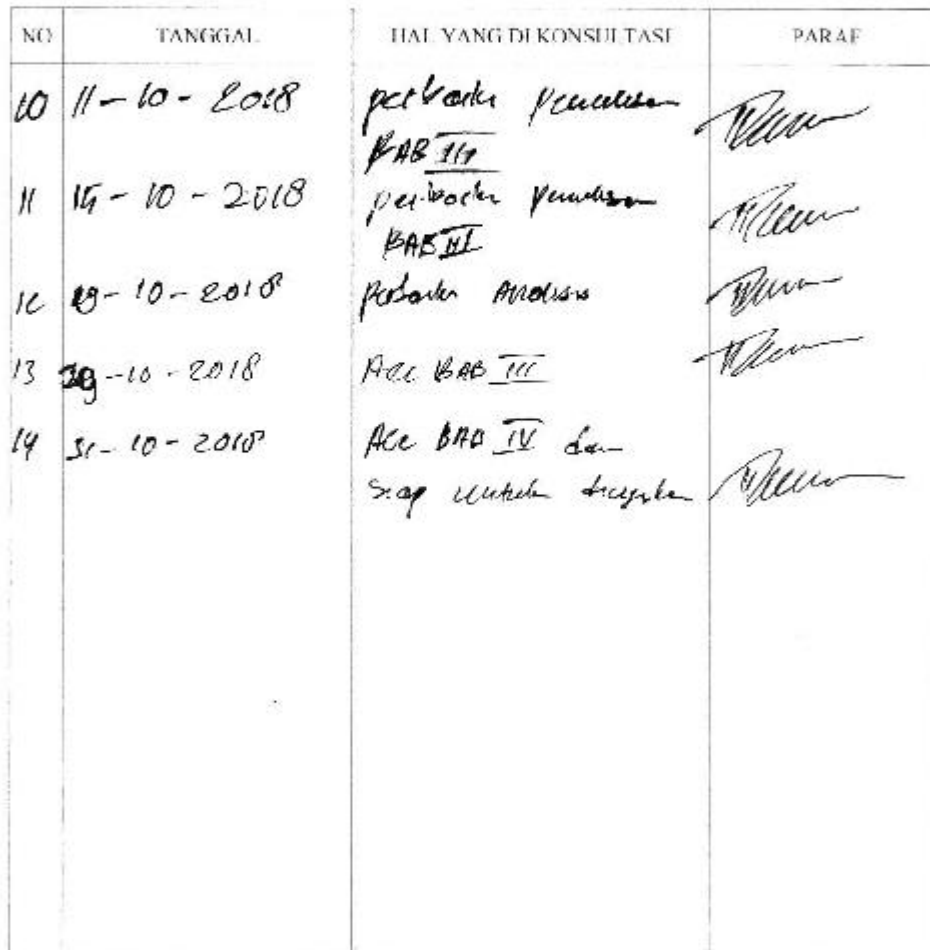 NO TANGGAL HAL YANG DI KONSULTASI PARAF
10 11-10-2018 perbaiki penulisan
BAB III
11 15-10-2018 perbaiki penulisan
BAB III
12 29-10-2018 perbaiki Analisis
13 -10-2018 Acc BAB III
14 31-10-2018 Acc BAB IV dan
Siap untuk diujikan